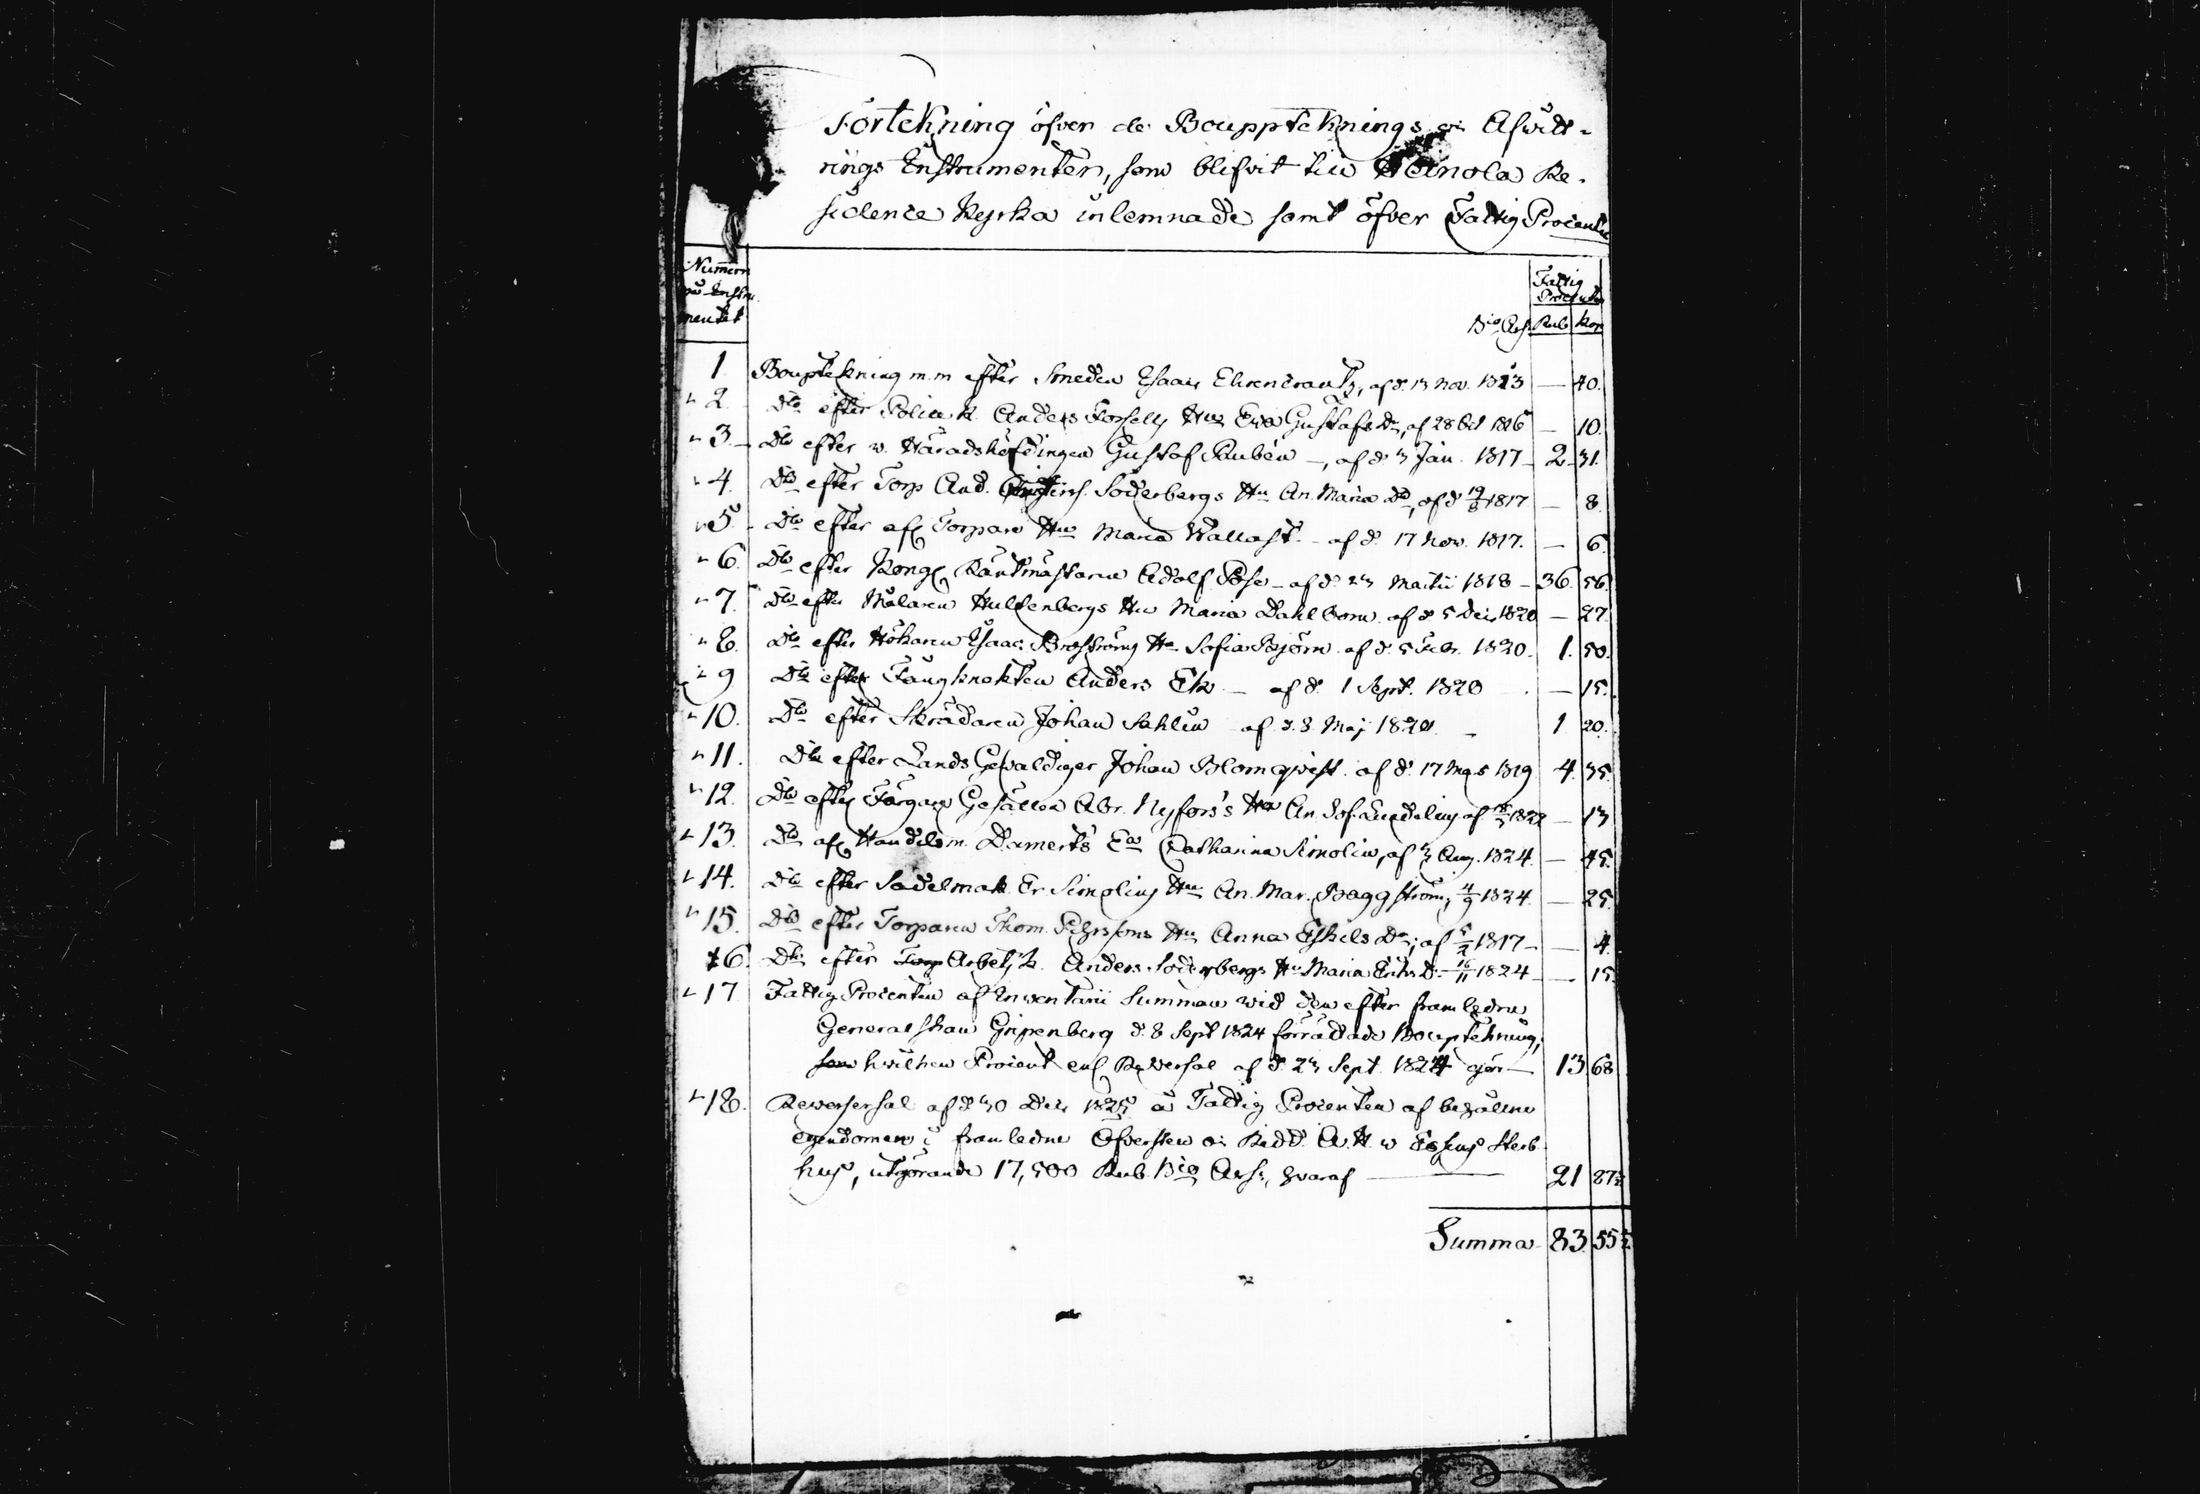 Förtekning öfver de Bouppteknings och Afvitt-
rings Instrumenter, som blifvit till Heinola Re-
sidence Kyrka inlemnade samt öfver Fattig Procenten
Numern
på Instru-
mentet
Fattig
Procenten
Bco Ass. Rub Kop
1 Bouptekning m.m efter Smeden Isaac Ehrencrantz, af d. 13 Nov. 1813 — 40.
" 2. Dto efter Police k. Anders Forsells Hu Eva Gustafs Dr, af 28 Oct 1816 — 10.
" 3 Dto efter v. Häradshöfdingen Gustaf Paubén —, af d. 3 Jan. 1817 — 2 31.
" 4. Dto efter Torp And. Söderbergs Hu An. Maria Dr, af d 19/8 1817 — 8.
" 5 Dto efter afl Torpare Hu Maria Wallast. - af d. 17 Nov. 1817. — 6.
" 6. Dto efter Kongl Räntmästaren Adolf Pose - af d. 23 Martii 1818 - 36. 56.
" 7. Dto efter Målaren Hultenbergs Hu Maria Dahlbom af d 5 Dec 1820 — 27.
" 8. Dto efter Hökaren Isaac Broströms Hu Sofia Björn af d. 5 Febr. 1820. 1. 50.
" 9 Dto efter Fångknekten Anders Ek — af d. 1 Sept. 1820 — 15.
" 10. Dto efter Skrädaren Johan Sahlin af d. 8 Maj 1820. 1 20.
" 11. Dto efter Lands Gevaldiger Johan Blomqvist. af d. 17 1819 4. 35.
" 12. Dto efter Färgare Gesällen Abr. Nyfors's Hu An. Sof. Lindelius af 1822 — 13
" 13. Dto afl Handelsm. Damerts Ea Catharina Simolin, af 3 Aug. 1824. — 45.
" 14. Dto efter Sadelmak. Er Simolins Hu An. Mar. Baggström, 4/9 1824. — 25.
" 15. Dto efter Torparen Thom. Pehrssons Hu Anna Eskils Dr, af 5/2 1817 — 4.
16. Dto efter Arbets k. Anders Söderbergs Hu Maria Eriks D. 16/11 1824 — 15.
" 17 Fattig Procenten af Inventarii Summan vid den efter framledne
Generalskan Gripenberg d. 8 Sept 1824 förrättade Bouptekning,
hvilken Procent enl Reversal af d. 23 Sept. 1824 gör — 13 68
" 18. Reversersal af d 30 Dec 1825 å Fattig Procenten af behållne
egendomen i framledne Öfversten och Ridd. A. H. v Essens Sterb
hus, utgörande 17,500 Rub. Bco Ass., hvaraf — 21 87½
Summa 83. 55½